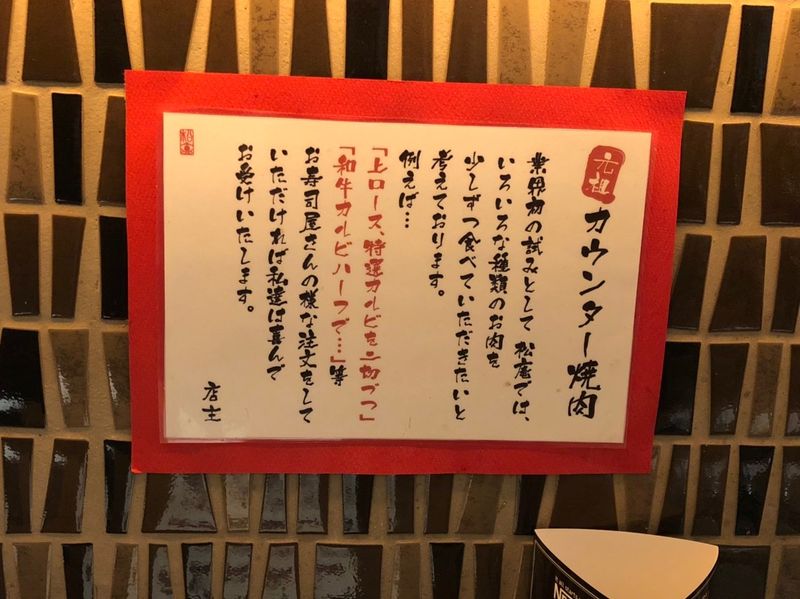 元祖
カウンター焼肉
業界初の試みとして 松庵では、
いろいろな種類のお肉を
少しずつ食べていただきたいと
考えております。
例えば…
「上ロース、特選カルビを二切づつ」
「和牛カルビハーフで…」等
お寿司屋さんの様な注文をして
いただければ私達は喜んで
お受けいたします。
店主